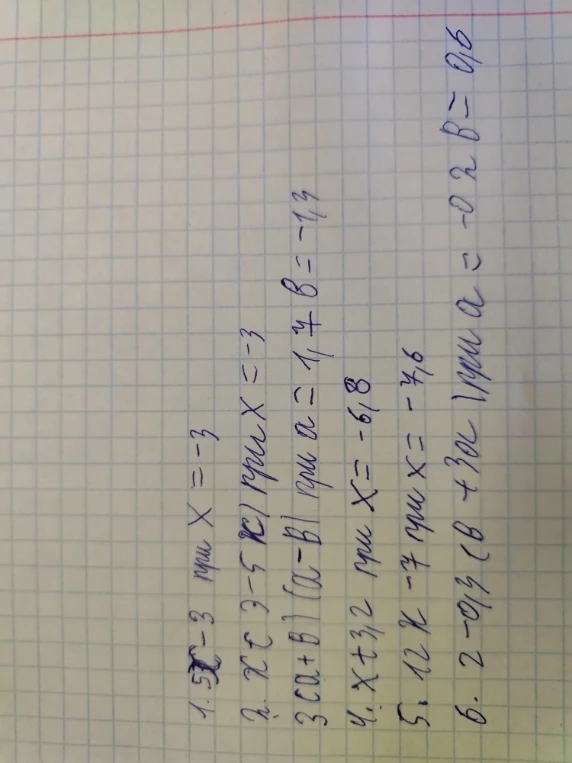 1. 5x - 3 при x = -3
2. x ( 9 - 5 x) при x = -3
3 (a + в) (a - в) при a = 1,7 в = -1,3
4. x + 3,2 при x = -6,8
5. 12 x - 7 при x = - 7,6
6. 2 - 0,3 (в + 3a) при a = -0 2 в = 0,6